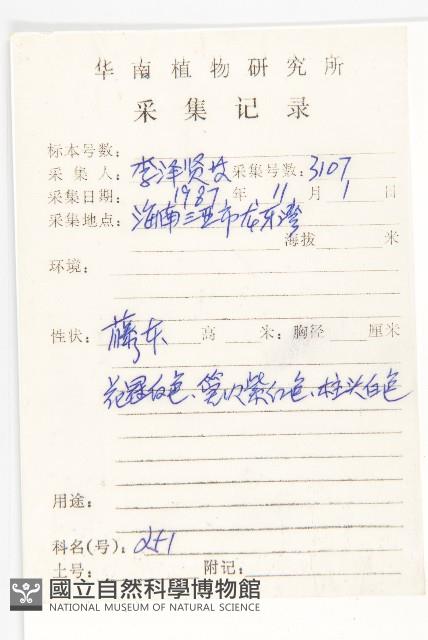 华南植物研究所
采集记录
标本号数：
采集人：李泽贤等 采集号数：3107
采集日期：1987年11月1日
采集地点：海南三亚市
海拔 米
环境：
性状：藤本 高 米：胸径 厘米
花冠白色、紫红色、柱头白色
用途：
科名(号)：251
土号： 附记：
國立自然科學博物館
NATIONAL MUSEUM OF NATURAL SCIENCE